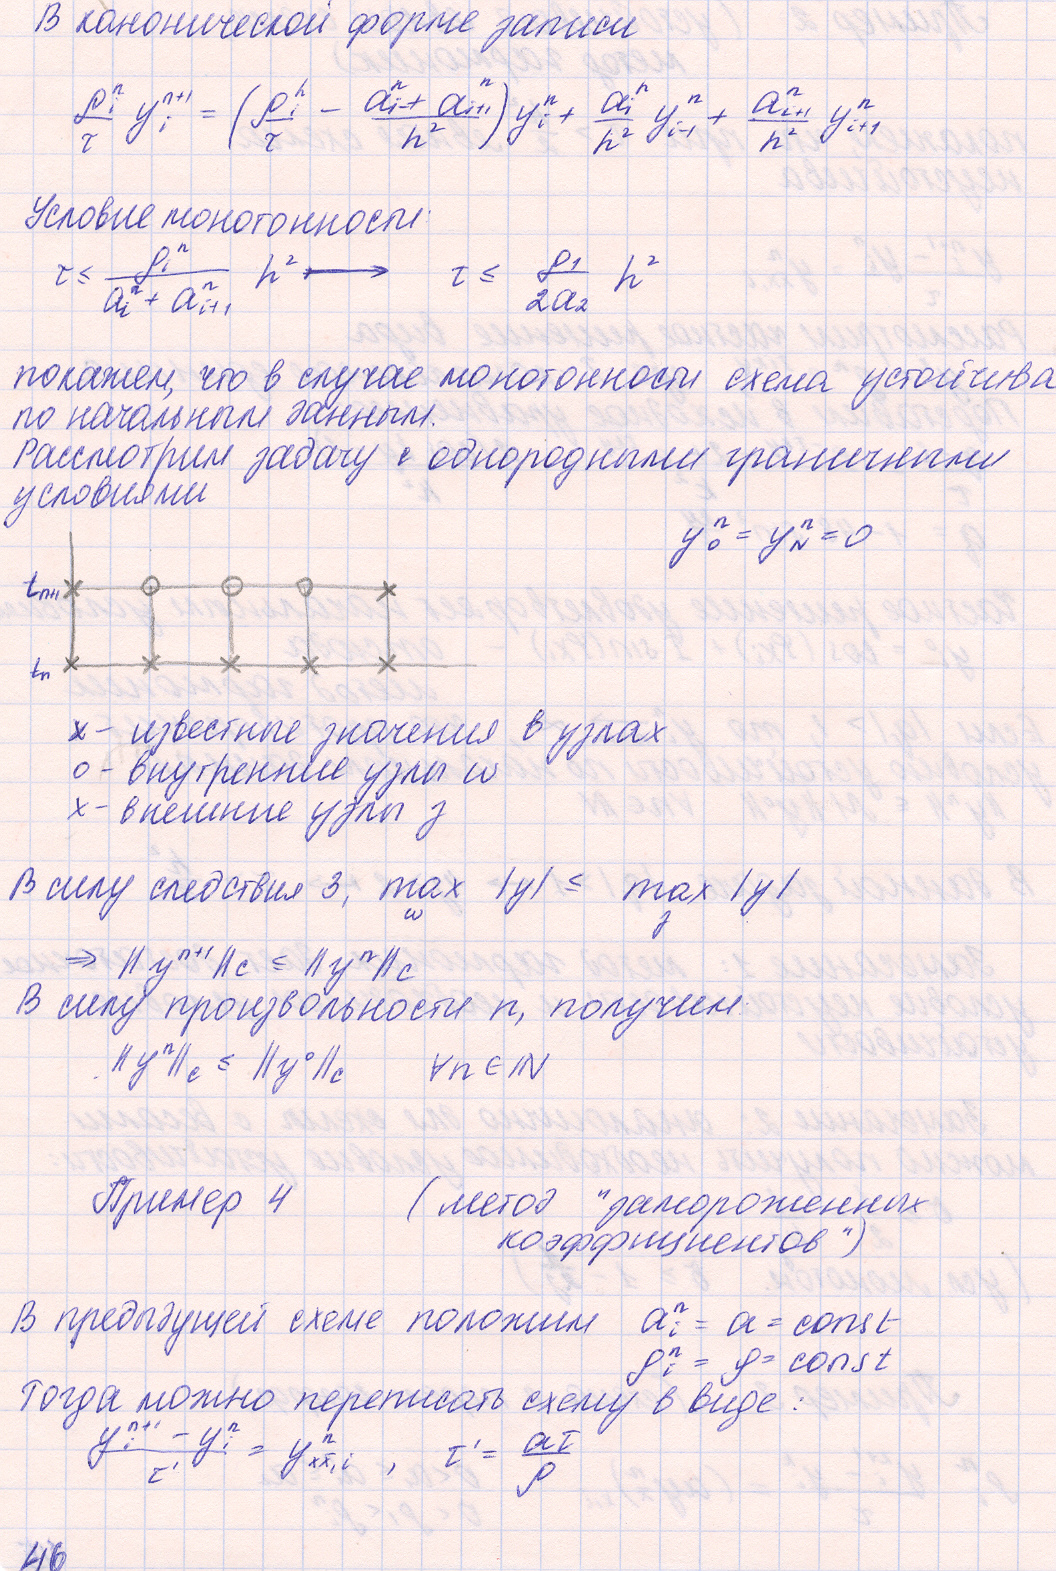 В канонической форме записи
ρᵢⁿ/τ yᵢⁿ⁺¹ = (ρᵢⁿ/τ − (aᵢⁿ + aᵢ₊₁ⁿ)/h²) yᵢⁿ + aᵢⁿ/h² yᵢ₋₁ⁿ + aᵢ₊₁ⁿ/h² yᵢ₊₁ⁿ
Условие монотонности:
τ ≤ ρᵢⁿ/(aᵢⁿ + aᵢ₊₁ⁿ) h² ⟶ τ ≤ ρ₁/(2a₂) h²
покажем, что в случае монотонности схема устойчива
по начальным данным.
Рассмотрим задачу с однородными граничными
условиями
y₀ⁿ = y_Nⁿ = 0
tₙ₊₁
tₙ
x – известные значения в узлах
o – внутренние узлы ω
x – внешние узлы γ
В силу следствия 3, max_ω |y| ≤ max_γ |y|
⇒ ‖yⁿ⁺¹‖_C ≤ ‖yⁿ‖_C
В силу произвольности n, получим:
‖yⁿ‖_C ≤ ‖y⁰‖_C ∀n ∈ ℕ
Пример 4 (метод "замороженных
коэффициентов")
В предыдущей схеме положим aᵢⁿ = a = const
ρᵢⁿ = ρ = const
Тогда можно переписать схему в виде:
(yᵢⁿ⁺¹ − yᵢⁿ)/τ' = yⁿ_x̄x,i , τ' = aτ/ρ
46